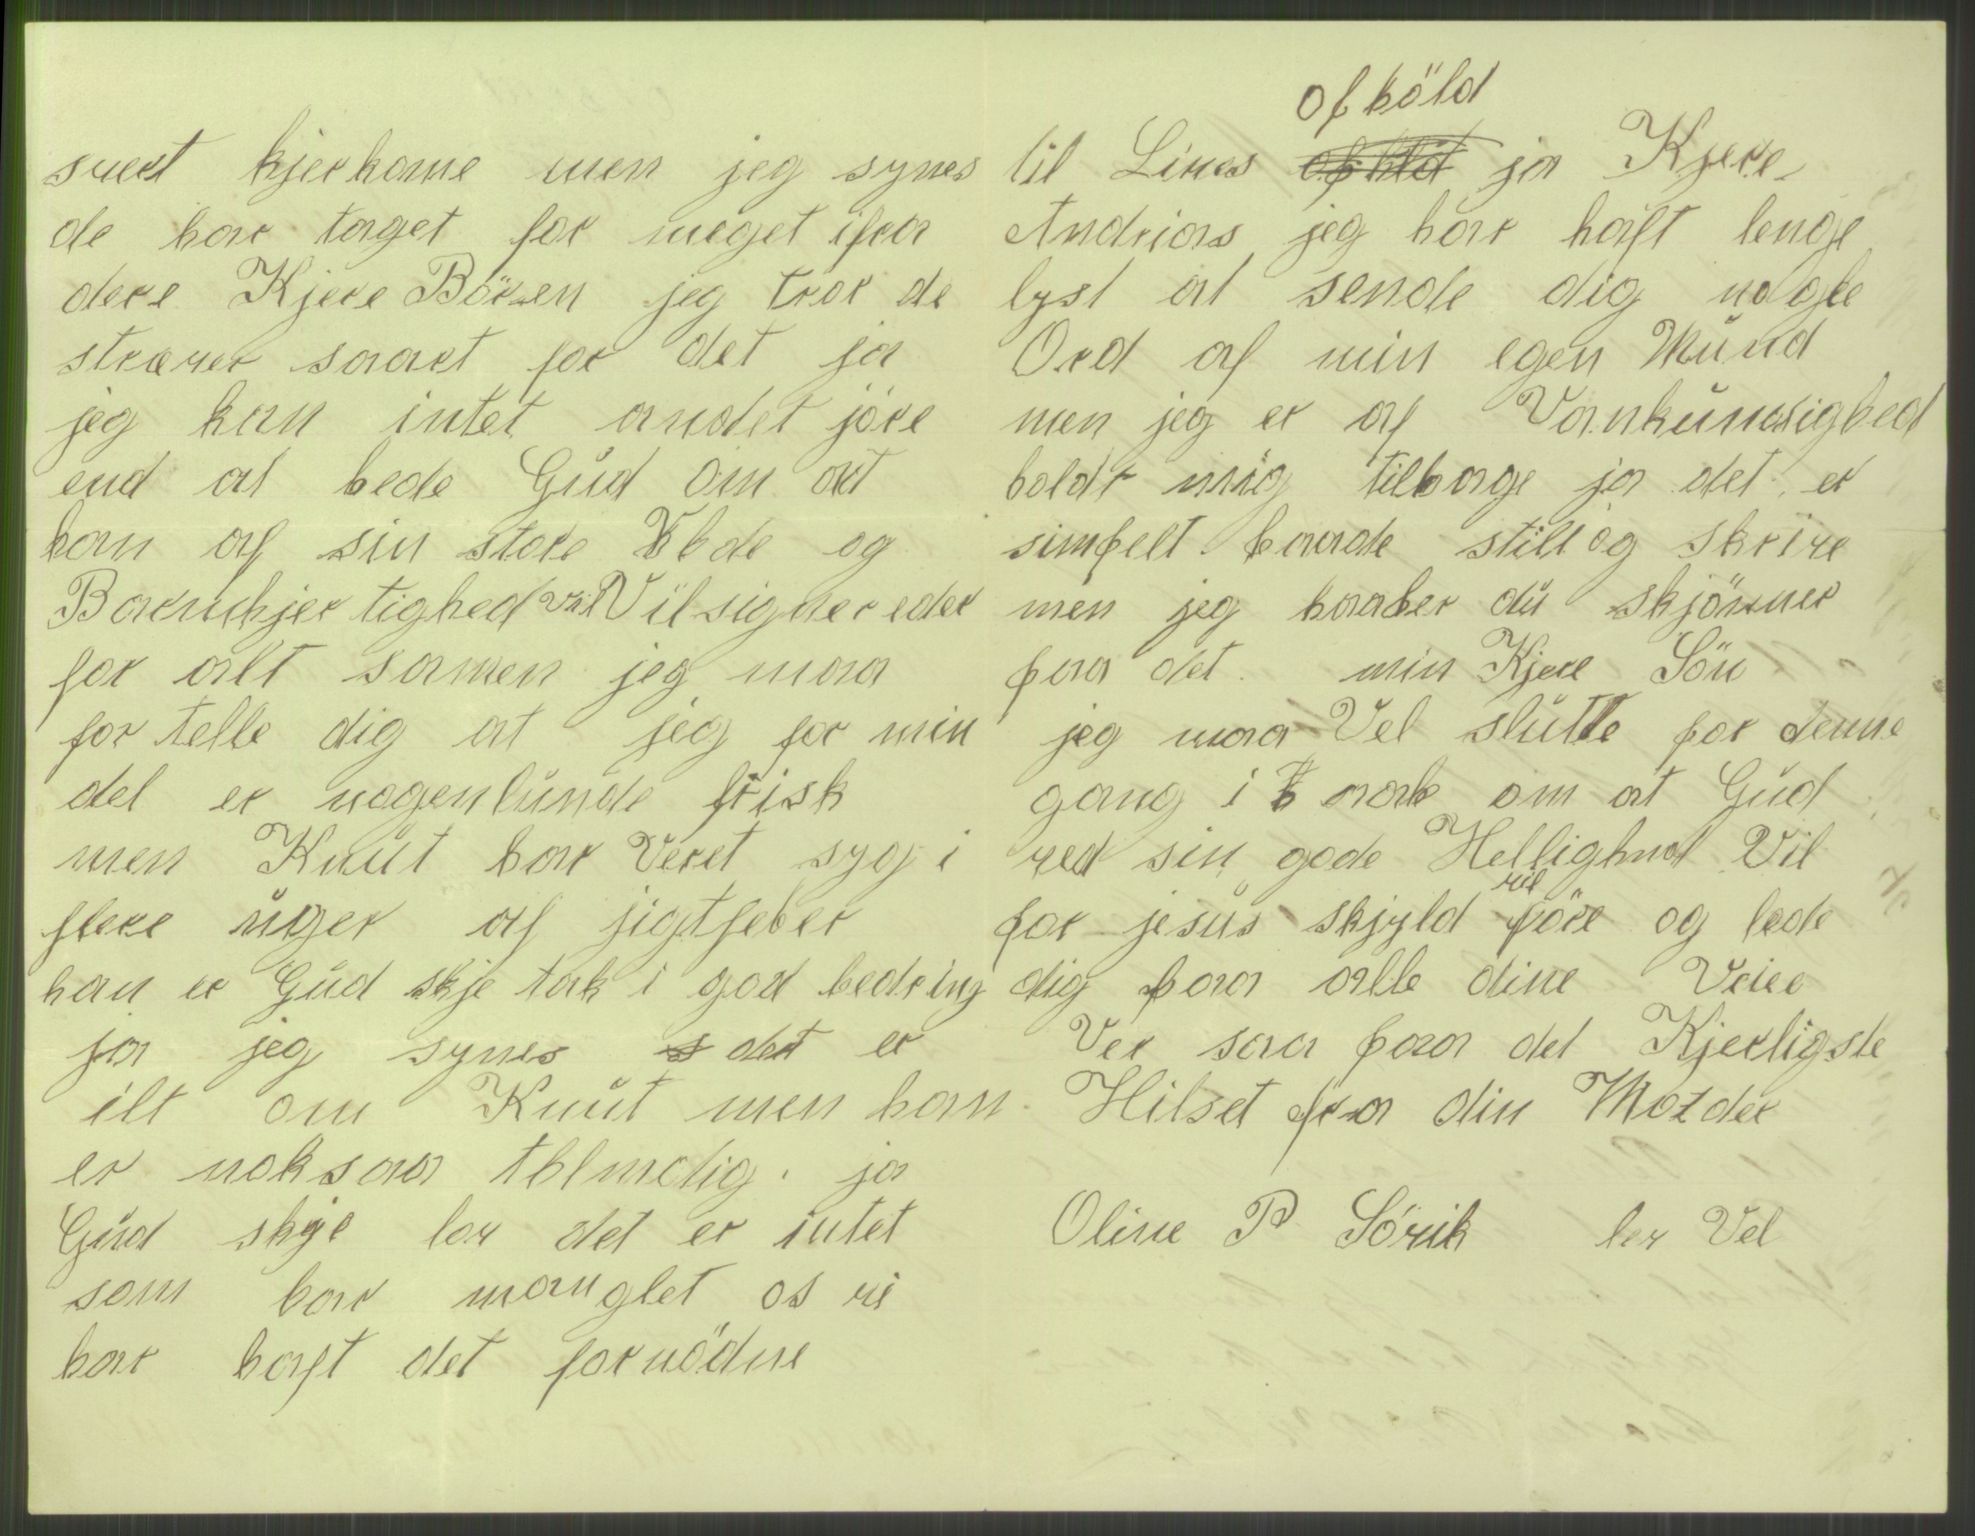 svert kjerkome men jeg synes
de har taget for meget ifra
dere Kjere Börnen jeg tror de
strever saart for det ja
jeg kan intet andet jöre
end at bede Gud om at
han af sin store Node og
Barmhjertighed vil Vilsigner eder
for alt samen jeg maa
fortelle dig at jeg for min
del er nogenlunde frisk
men Knut har Veret syg i
flere uger af jigtfeber
han er Gud skje tak i god bedring
ja jeg synes det er
ilt om Knut men han
er noksaa tolmdig. ja
Gud skje lov det er intet
som har manglet os vi
har haft det fornödne
Ofhöld
til Lives ofhld ja Kjere
Andrias jeg har haft lenge
lyst at sende dig nogle
Ord af min egen Mund
men jeg er af Vankundsighed
holdt mig tilbage ja det er
simpelt baade stil og skrive
men jeg haaber du skjönner
paa det. min Kjere Sön
jeg maa Vel slutte for denne
gang i haab om at Gud
ved sin gode Hellighnd Vil
for jesus skjyld vil före og lede
dig paa alle dine Veiee
Ver saa paa det Kjerligste
Hilset fra din Mozder
Oline P Sörvik lev Vel